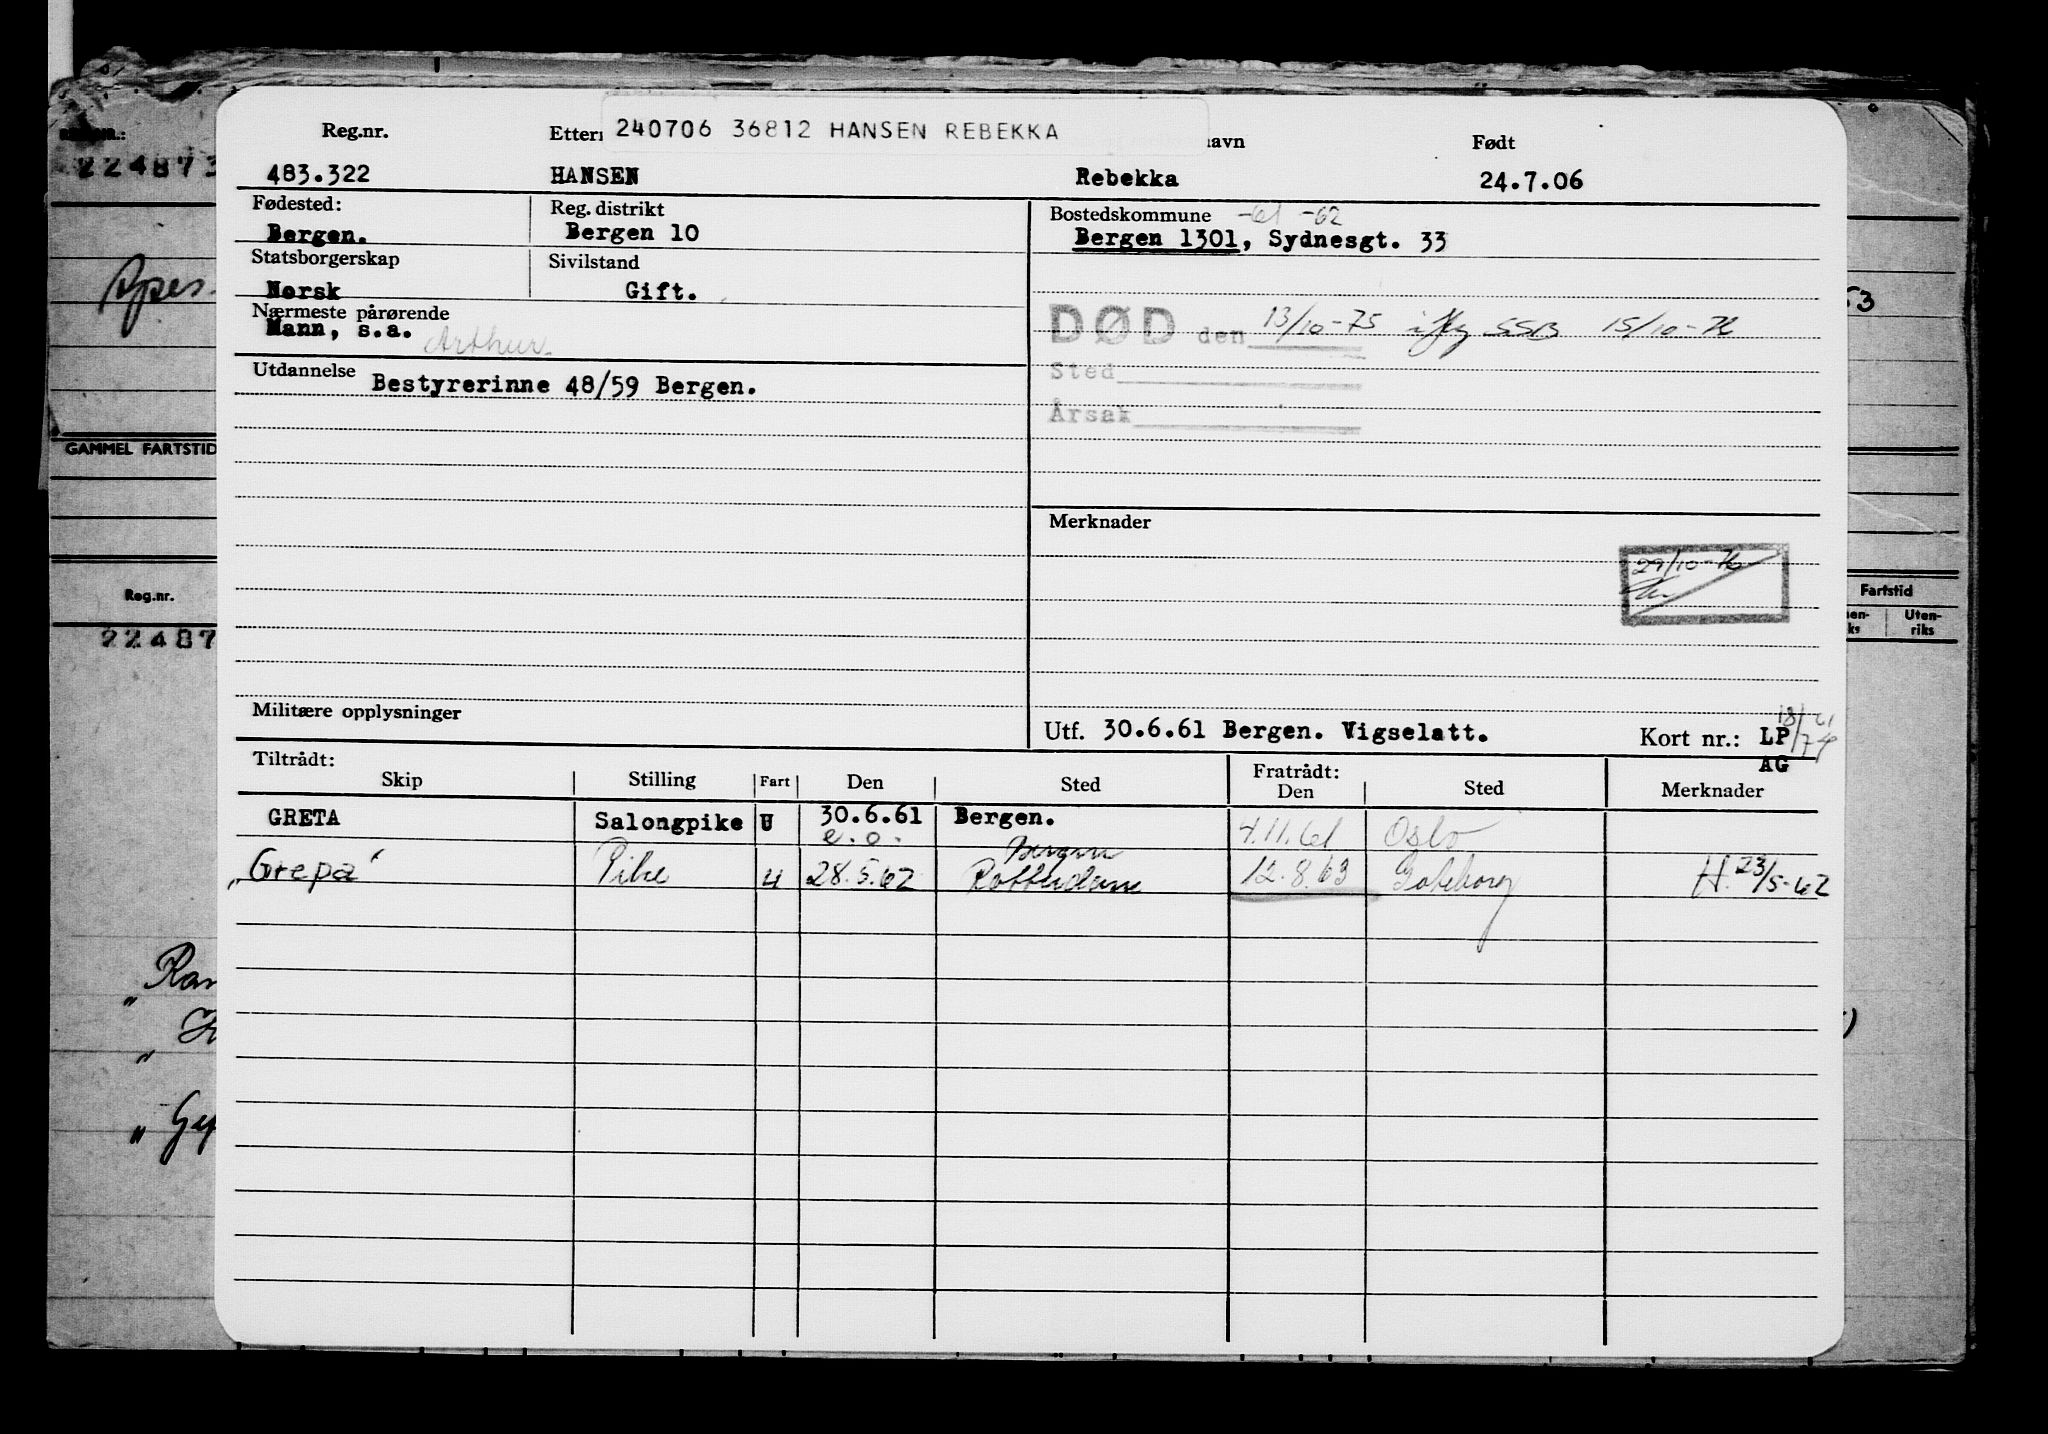 240706 36812 HANSEN REBEKKA
Reg.nr. Født
483.322 HANSEN Rebekka 24.7.06
Fødested: Reg. distrikt Bostedskommune -61 -62
Bergen. Bergen 10 Bergen 1301, Sydnesgt. 33
Statsborgerskap Sivilstand
Norsk Gift.
Nærmeste pårørende
Mann, s.a. Arthur.
DØD den 13/10-75 SSB 15/10-76
Sted
Årsak
Utdannelse Bestyrerinne 48/59 Bergen.
Merknader
29/10-76
Militære opplysninger
Utf. 30.6.61 Bergen. Vigselatt. Kort nr.: LP
AG
Tiltrådt: Fratrådt:
Skip Stilling Fart Den Sted Den Sted Merknader
GRETA Salongpike U 30.6.61 Bergen. 4.11.61 Oslo
e.o. Bergen
"Grepa" Pike U 28.5.62 Rotterdam 12.8.63 Gøteborg H. 23/5-62
224873
GAMMEL FARTSTID
Reg.nr. Fartstid
Uten-
riks
22487
53